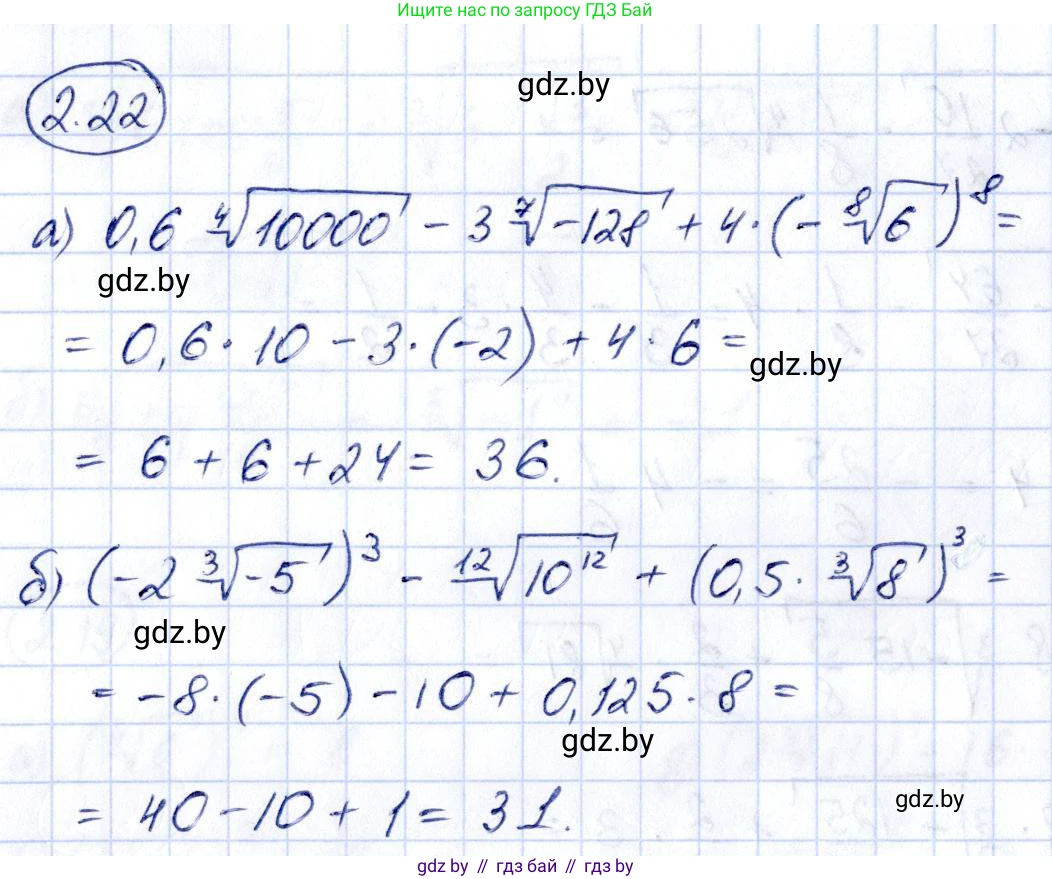 Ищите нас по запросу ГДЗ Бай
2.22
gdz.by
а) 0,6 ⁴√10000 - 3 ⁷√-128 + 4·(- ⁸√6)⁸ =
gdz.by
= 0,6·10 - 3·(-2) + 4·6 =
gdz.by
= 6 + 6 + 24 = 36.
б) (-2 ³√-5)³ - ¹²√10¹² + (0,5· ³√8)³ =
gdz.by
= -8·(-5) - 10 + 0,125·8 =
gdz.by
= 40 - 10 + 1 = 31.
gdz.by
gdz by // гдз бай // гдз by